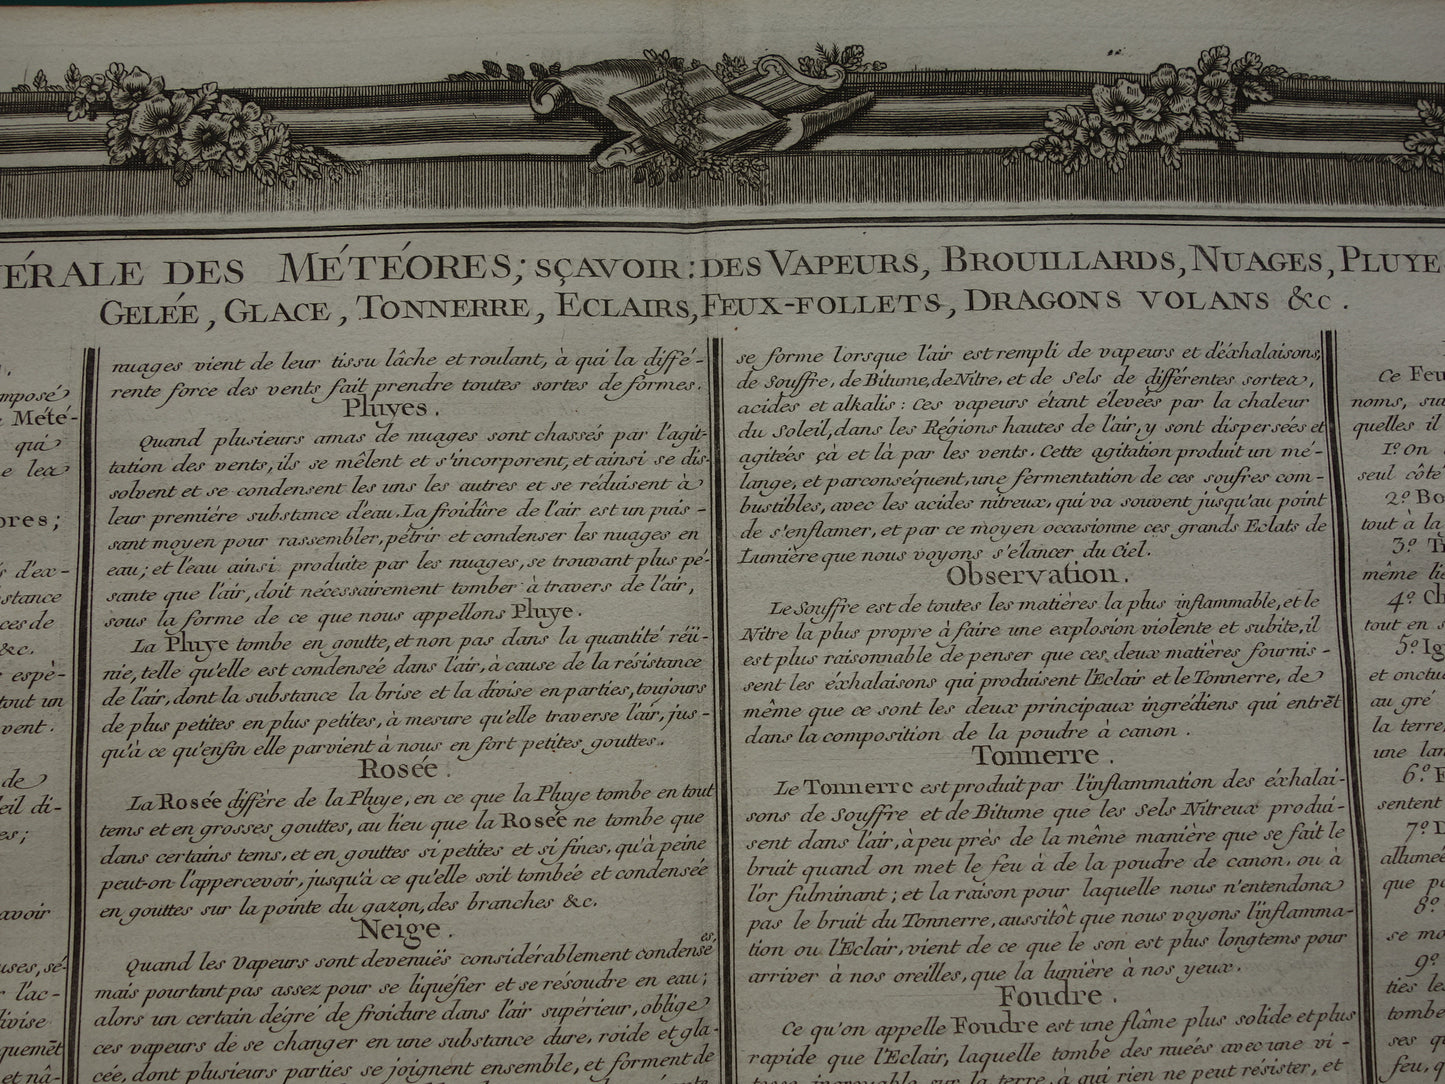 NÉRALE DES MÉTÉORES; SÇAVOIR: DES VAPEURS, BROUILLARDS, NUAGES, PLUYE
GELÉE, GLACE, TONNERRE, ECLAIRS, FEUX-FOLLETS, DRAGONS VOLANS &c.
mposé
Mété-
qui
e lea
ores;
s d'ex-
stance
ces de
&c.
espè-
tout un
vent.
de
eil di-
es;
avoir
uses, sé-
r l'ac-
divise
quemēt
et nâ-
nuages vient de leur tissu lâche et roulant, à qui la diffé-
rente force des vents fait prendre toutes sortes de formes.
Pluyes.
Quand plusieurs amas de nuages sont chassés par l'agit-
tation des vents, ils se mêlent et s'incorporent, et ainsi se dis-
solvent et se condensent les uns les autres et se réduisent à
leur premiére substance d'eau. La froidûre de l'air est un puis-
sant moyen pour rassembler, pétrir et condenser les nuages en
eau; et l'eau ainsi produite par les nuages, se trouvant plus pé-
sante que l'air, doit nécessairement tomber à travers de l'air,
sous la forme de ce que nous appellons Pluye.
La Pluye tombe en goutte, et non pas dans la quantité réü-
nie, telle qu'elle est condenseé dans l'air, à cause de la résistance
de l'air, dont la substance la brise et la divise en parties, toujours
de plus petites en plus petites, à mesure qu'elle traverse l'air, jus-
qu'à ce qu'enfin elle parvient à nous en fort petites gouttes.
Rosée.
La Rosée différe de la Pluye, en ce que la Pluye tombe en tout
tems et en grosses gouttes, au lieu que la Rosée ne tombe que
dans certains tems, et en gouttes si petites et si fines, qu'à peine
peut-on l'appercevoir, jusqu'à ce qu'elle soit tombée et condensée
en gouttes sur la pointe du gazon, des branches &c.
Neige.
Quand les Vapeurs sont devenuës considérablement condensées,
mais pourtant pas assez pour se liquéfier et se résoudre en eau;
alors un certain dégré de froidure dans l'air supérieur, oblige
ces vapeurs de se changer en une substance dure, roide et gla-
cée, dont plusieurs parties se joignent ensemble, et forment de
se forme lorsque l'air est rempli de vapeurs et d'éxhalaisons,
de Souffre, de Bitume, de Nitre, et de Sels de différentes sortea,
acides et alkalis: Ces vapeurs étant élevées par la chaleur
du Soleil, dans les Régions hautes de l'air, y sont dispersées et
agiteés çà et là par les vents. Cette agitation produit un mé-
lange, et parconséquent, une fermentation de ces soufres com-
bustibles, avec les acides nitreux, qui va souvent jusqu'au point
de s'enflamer, et par ce moyen occasionne ces grands Eclats de
Lumière que nous voyons s'élancer du Ciel.
Observation.
Le Souffre est de toutes les matières la plus inflammable, et le
Nitre la plus propre à faire une explosion violente et subite, il
est plus raisonnable de penser que ces deux matières fournis-
sent les éxhalaisons qui produisent l'Eclair et le Tonnerre, de
même que ce sont les deux principaux ingrédiens qui entrēt
dans la composition de la poudre à canon.
Tonnerre.
Le Tonnerre est produit par l'inflammation des éxhalai-
sons de Souffre et de Bitume que les Sels Nitreux produi-
sent dans l'air, à peu près de la même manière que se fait le
bruit quand on met le feu à de la poudre de canon, ou à
l'or fulminant; et la raison pour laquelle nous n'entendona
pas le bruit du Tonnerre, aussitôt que nous voyons l'inflamma-
tion ou l'Eclair, vient de ce que le son est plus longtems pour
arriver à nos oreilles, que la lumière à nos yeux.
Foudre.
Ce qu'on appelle Foudre est une flâme plus solide et plus
rapide que l'Eclair, laquelle tombe des nueés avec une vi-
tesse incroyable sur la terre, à qui rien ne peut résister, et
Ce Feu
noms, sui
quelles il
1º. On
seul côté
2º. Bo
tout à la
3º. Tr
même lie
4º. Ch
tout en s
5º. Ig
et onctue
au gré
la terre,
une lan
6º. F
sentent
7º. D
allumée
que pa
8º.
se mo
9º.
ties les
tombe
ses qu
feu, q